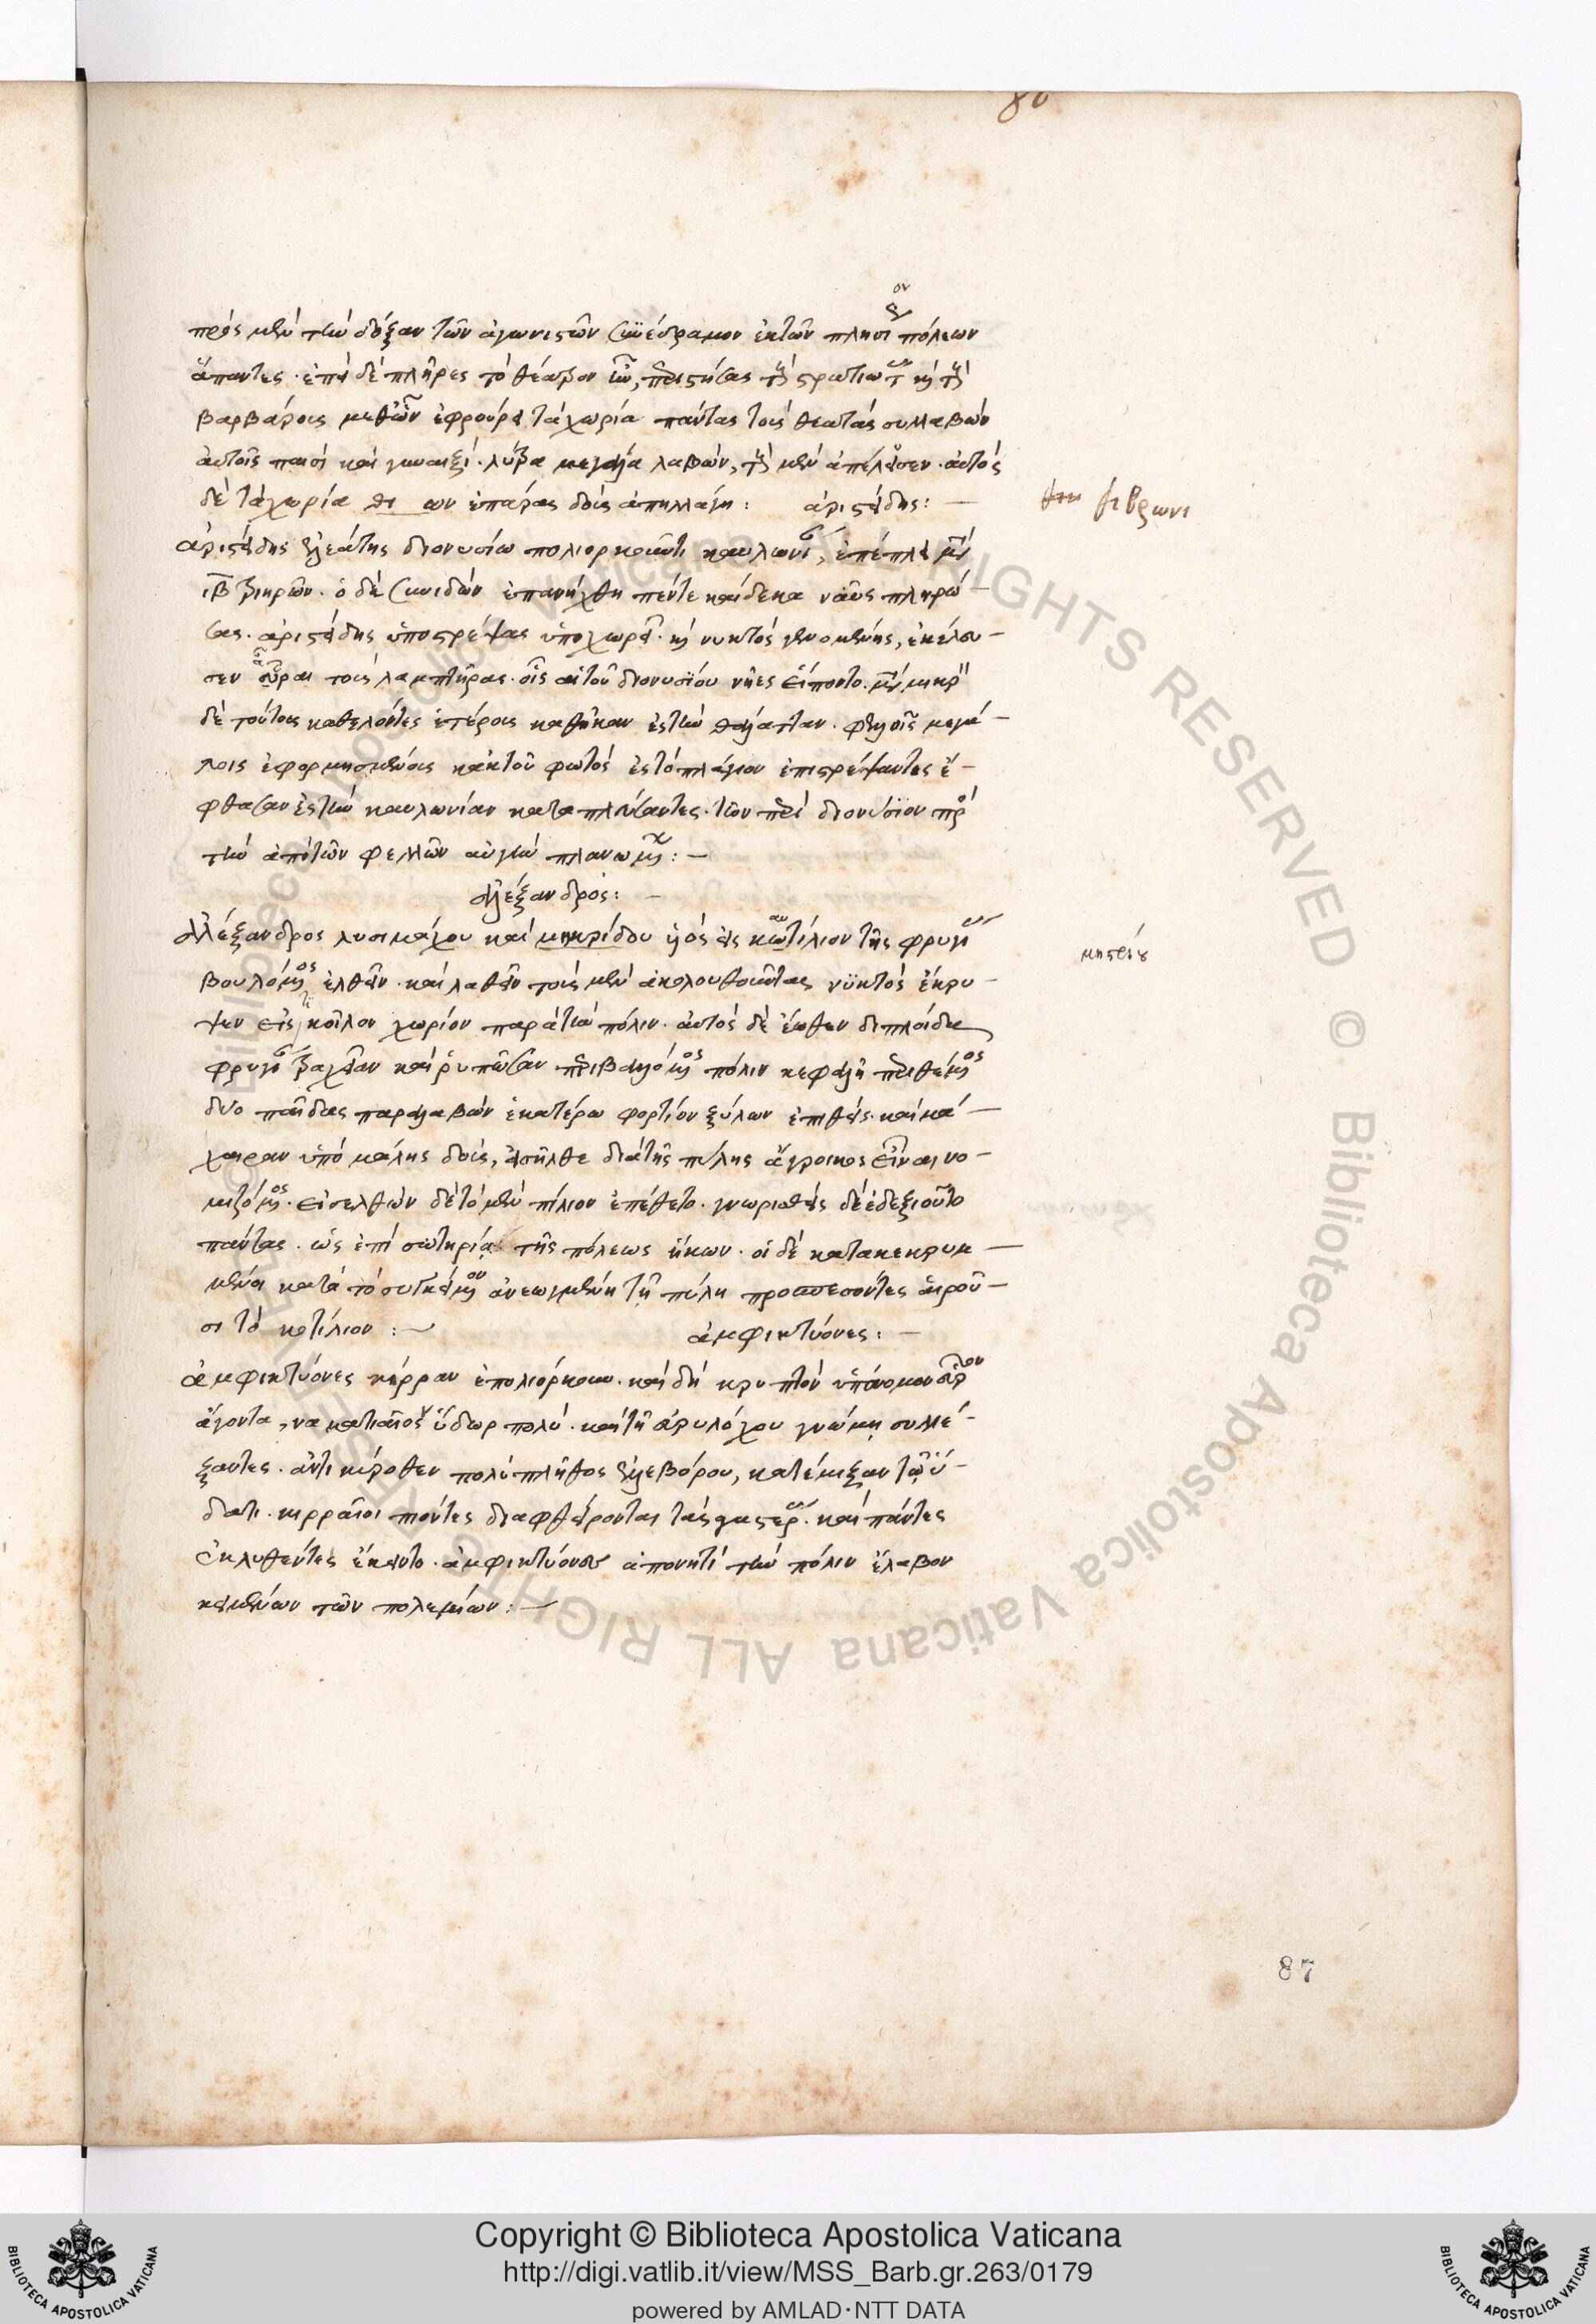 πρὸς μὲν τὴν δόξαν τῶν ἀγωνιστῶν συνέδραμον ἐκ τῶν πλησίον πόλεων
ἅπαντες. ἐπεὶ δὲ πλῆρες τὸ θέατρον ἦν, περιστήσας τῶν στρατιωτῶν καὶ τοὺς
βαρβάροις μεθ' ὧν ἐφρούρει τὰ χωρία πάντας τοὺς θεατὰς συλλαβὼν
αὐτοῖς παισὶ καὶ γυναιξὶ. λύτρα μεγάλα λαβὼν, τοὺς μὲν ἀπέλυσεν. αὐτὸς
δὲ τὰ χωρία ων δοὺς ἀπηλλάγη: ἀριστείδης: —
θιβρωνι
ἀριστείδης ἐλεάτης διονυσίω πολιορκοῦντι καυλωνίαν, ἐπέπλει μετὰ
ιβ τριηρῶν. ὁ δὲ ἐπανήχθη πέντε καίδεκα ναῦς πληρώ–
σας. ἀριστείδης ὑποστρέψας ὑποχωρεῖ. καὶ νυκτὸς γενομένης, ἐκέλευ–
σεν ἆραι τοὺς λαμπτῆρας. οἷς αἱ τοῦ διονυσίου νῆες εἵποντο. μετὰ μικρὸν
δὲ τούτους καθελόντες ἑτέρους καθῆκαν ἐς τὴν θάλατταν. φελλοῖς μεγά–
λοις ἐφορμησαμένους κἀκ τοῦ φωτὸς ἐς τὸ πλάγιον ἐπιστρέψαντες ἔ–
φθασαν ἐς τὴν καυλωνίαν καταπλεύσαντες. τῶν περὶ διονύσιον πρὸς
τὴν ἀπὸ τῶν φελλῶν αὐγὴν πλανωμένων: —
ἀλέξανδρος: —
ἀλέξανδρος λυσιμάχου καὶ μακρίδου υἱὸς εἰς κωτίλιον τῆς φρυγίας
μητρίδου
βουλόμενος ἐλθεῖν. καὶ λαθεῖν τοὺς μὲν ἀκολουθοῦντας νυκτὸς ἔκρυ–
ψεν εἴς τι κοῖλον χωρίον παρὰ τὴν πόλιν. αὐτὸς δὲ ἕωθεν διπλοίδα
φρυγίαν τραχεῖαν καὶ ῥυπῶσαν περιβαλόμενος πόλιν κεφαλῇ περιθέμενος
δύο παῖδας παραλαβὼν ἑκατέρω φορτίον ξύλων ἐπιθεὶς. καὶ μά–
χαιραν ὑπὸ μάλης δοὺς, εἰσῆλθε διὰ τῆς πύλης ἄγροικος εἶναι νο–
μιζόμενος. εἰσελθὼν δὲ τὸ μὲν πίλιον ἐπέθετο. γνωρισθεὶς δὲ ἐδεξιοῦτο
πάντας. ὡς ἐπὶ σωτηρία τῆς πόλεως ἥκων. οἱ δὲ κατακεκρυμ–
μένοι κατὰ τὸ συγκείμενον ἀνεωγμένη τῇ πύλη προσπεσόντες αἱροῦ–
σι τὸ κοτίλιον: — ἀμφικτύονες: —
ἀμφικτύονες κίρραν ἐπολιόρκουν. καὶ δὴ κρυπτὸν ὑπόνομον εὗρον
ἄγοντα, νάματος ὕδωρ πολύ. καὶ τῇ εὐρυλόχου γνώμη συλλέ–
ξαντες. ἀντικύροθεν πολὺ πλῆθος ἐλεβόρου, κατέμιξαν τῷ ὕ–
δατι. κιρραῖοι πιόντες διαφθείρονται τὰς γαστέρας. καὶ πάντες
ἐκλυθέντες ἔκειντο. ἀμφικτύονες ἀπονητὶ τὴν πόλιν ἔλαβον
κειμένων τῶν πολεμίων: —
87
Copyright © Biblioteca Apostolica Vaticana
http://digi.vatlib.it/view/MSS_Barb.gr.263/0179
powered by AMLAD·NTT DATA